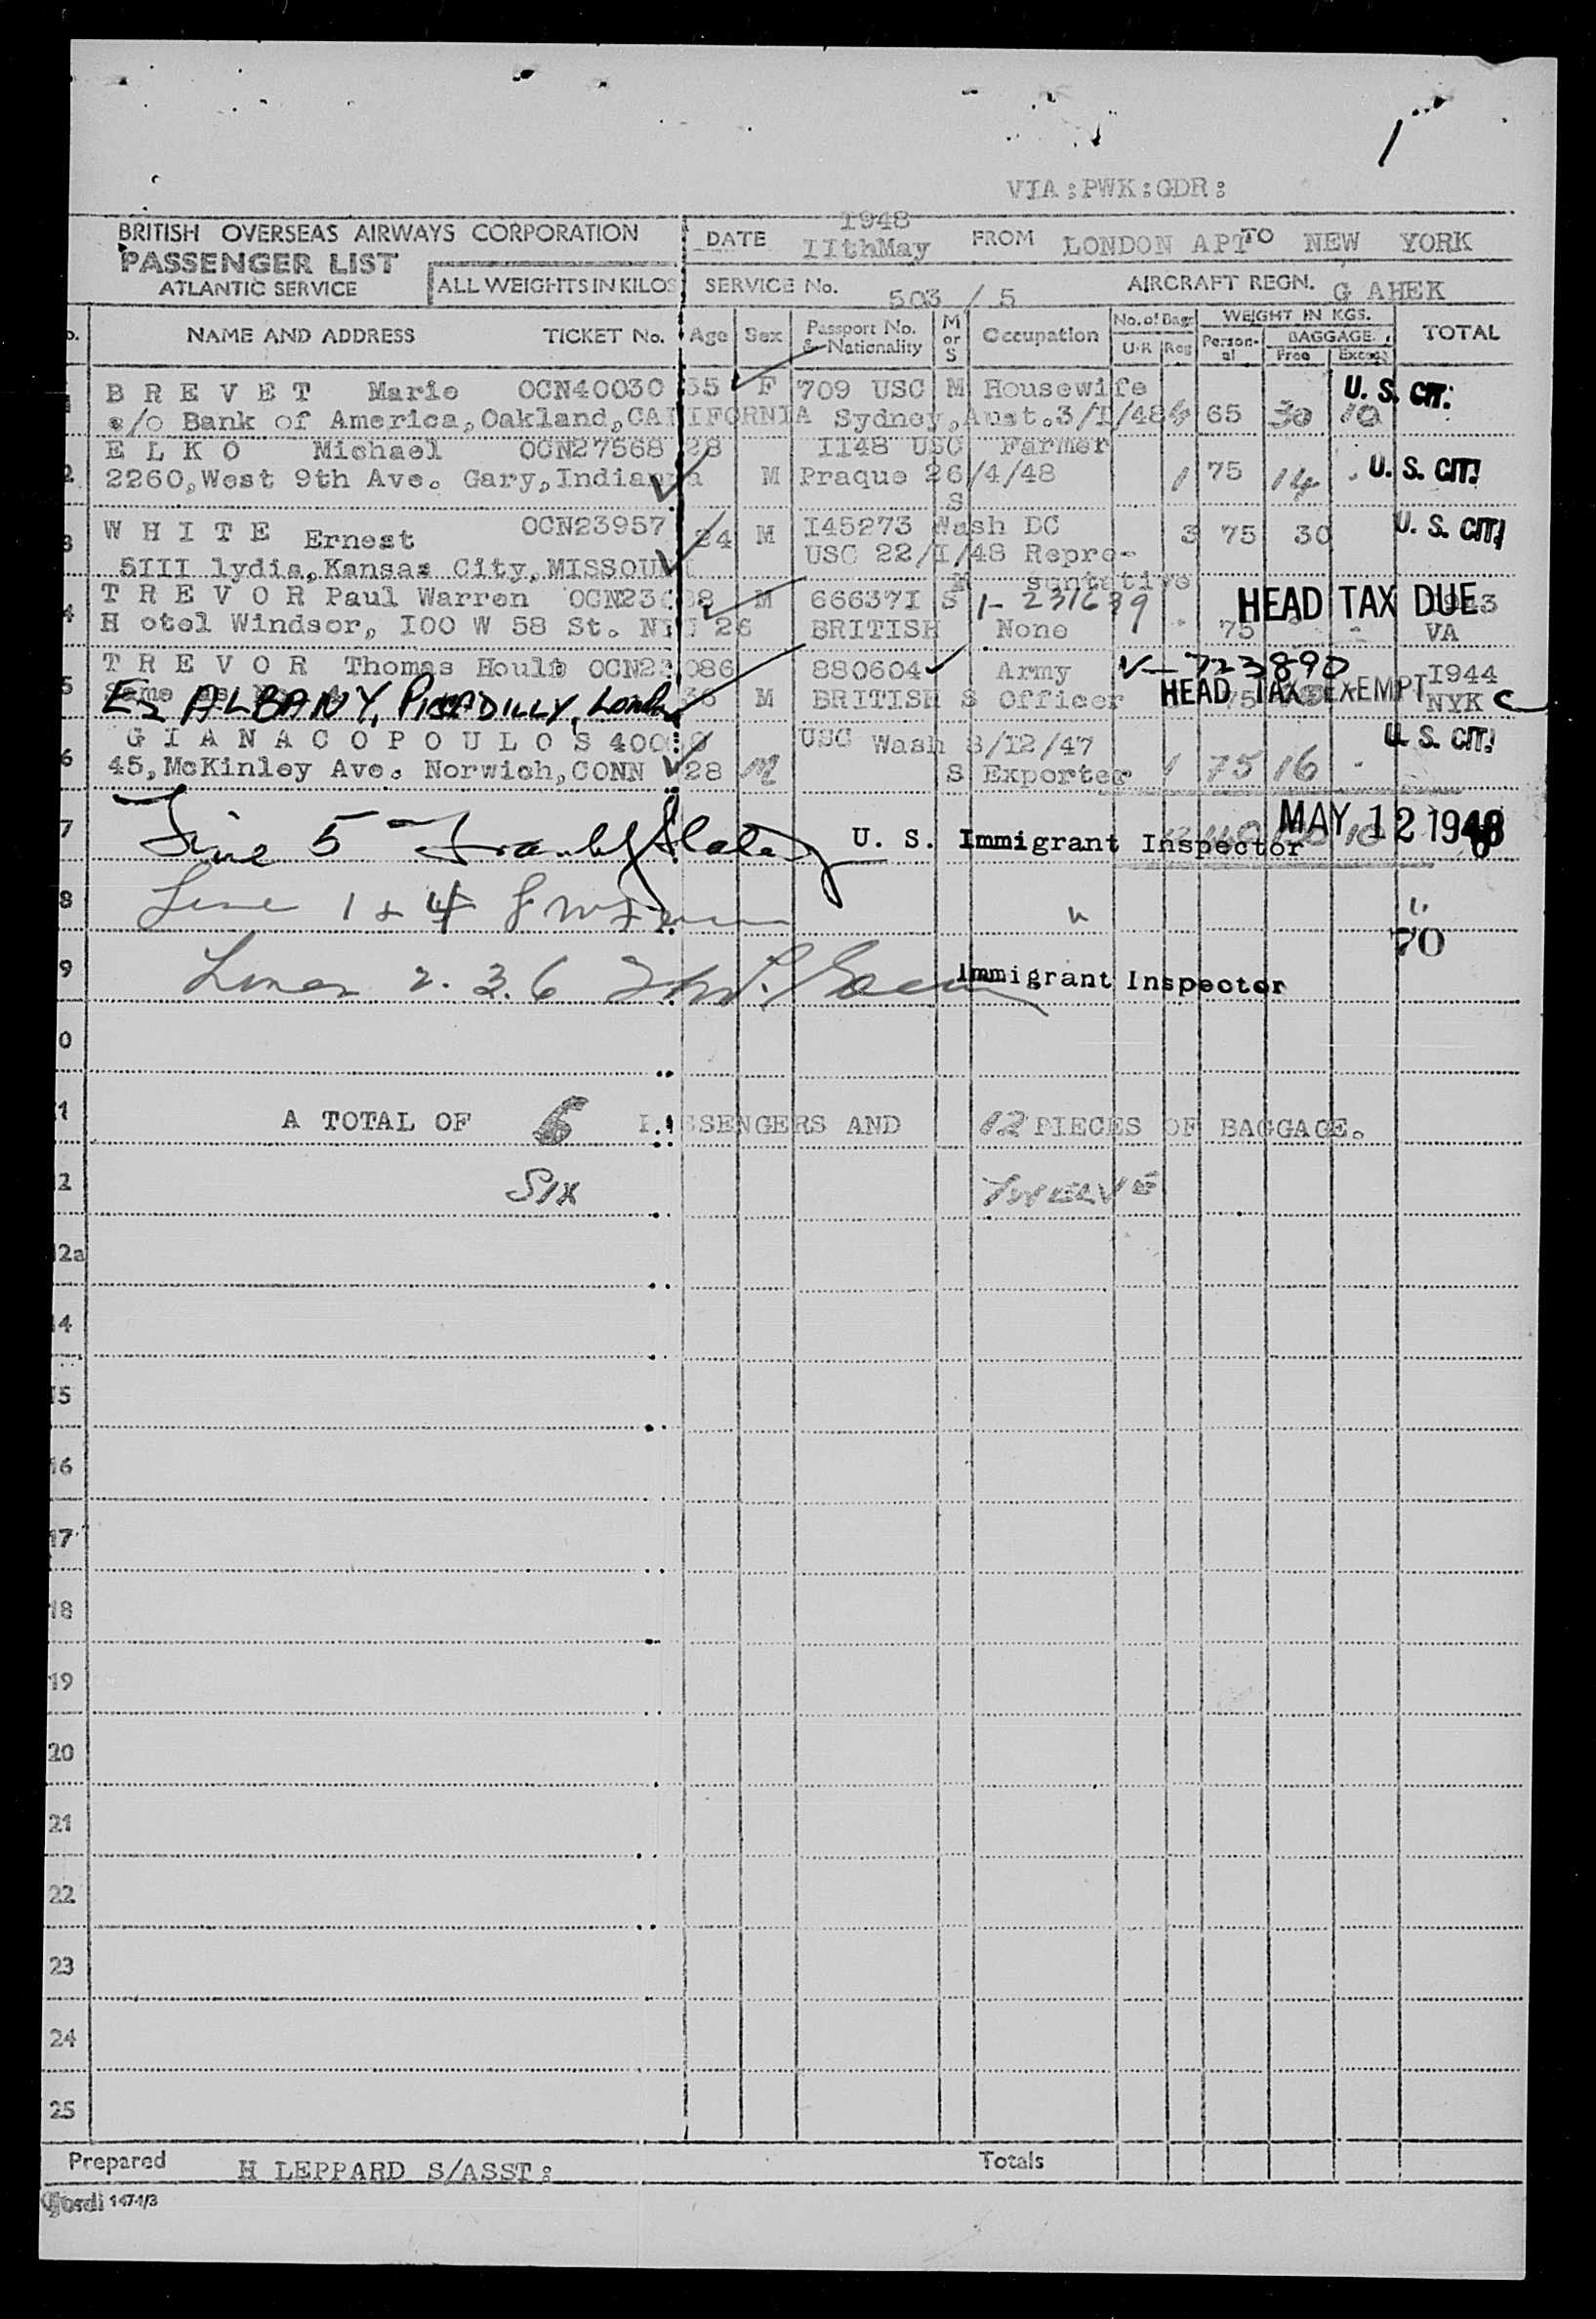 VIA:PWK:GDR:
BRITISH OVERSEAS AIRWAYS CORPORATION
PASSENGER LIST
ATLANTIC SERVICE
ALL WEIGHTS IN KILOS
DATE 1948 IIthMay FROM LONDON APT TO NEW YORK
SERVICE No. 503 / 5 AIRCRAFT REGN. G AHEK
NAME AND ADDRESS TICKET No. Age Sex Passport No. & Nationality M or S Occupation No. of Bags U-R Reg WEIGHT IN KGS. Personal BAGGAGE Free Excess TOTAL
B R E V E T Marie OCN40030 55 F 709 USC M Housewife U. S. CIT.
c/o Bank of America, Oakland, CALIFORNIA Sydney, Aust. 3/I/48 65 30 10
E L K O Michael OCN27568 28 1148 USC Farmer
2 2260, West 9th Ave. Gary, Indiana M Praque 26/4/48 1 75 14 U. S. CIT.
S
3 W H I T E Ernest OCN23957 24 M I45273 Wash DC 3 75 30 U. S. CIT.
USC 22/I/48 Repre-
5III lydia, Kansas City, MISSOURI
sentative
T R E V O R Paul Warren M 66637I S 1-231639 HEAD TAX DUE
4 H otel Windsor, I00 W 58 St. 26 BRITISH None 75 VA
T R E V O R Thomas Hoult 880604 Army V-723890 I944
5 E2 ALBANY, PICCADILLY, London 36 M BRITISH S Officer 75 HEAD TAX EXEMPT NYK C
G I A N A C O P O U L O S USC Wash 3/I2/47 U. S. CIT.
6 45, McKinley Ave. Norwich, CONN 28 M S Exporter 1 75 16
7 Line 5 U. S. Immigrant Inspector MAY 12 1948
8 Line 1 & 4 "
70
9 Lines 2. 3. 6 Immigrant Inspector
0
1 A TOTAL OF 6 PASSENGERS AND 12 PIECES OF BAGGAGE.
2 SIX TWELVE
2a
14
15
16
17
18
19
20
21
22
23
24
25
Prepared H LEPPARD S/ASST: Totals
1474/3